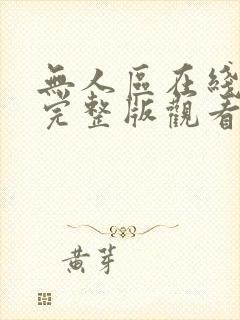 無人區在綫
完整版觀看
黃芽